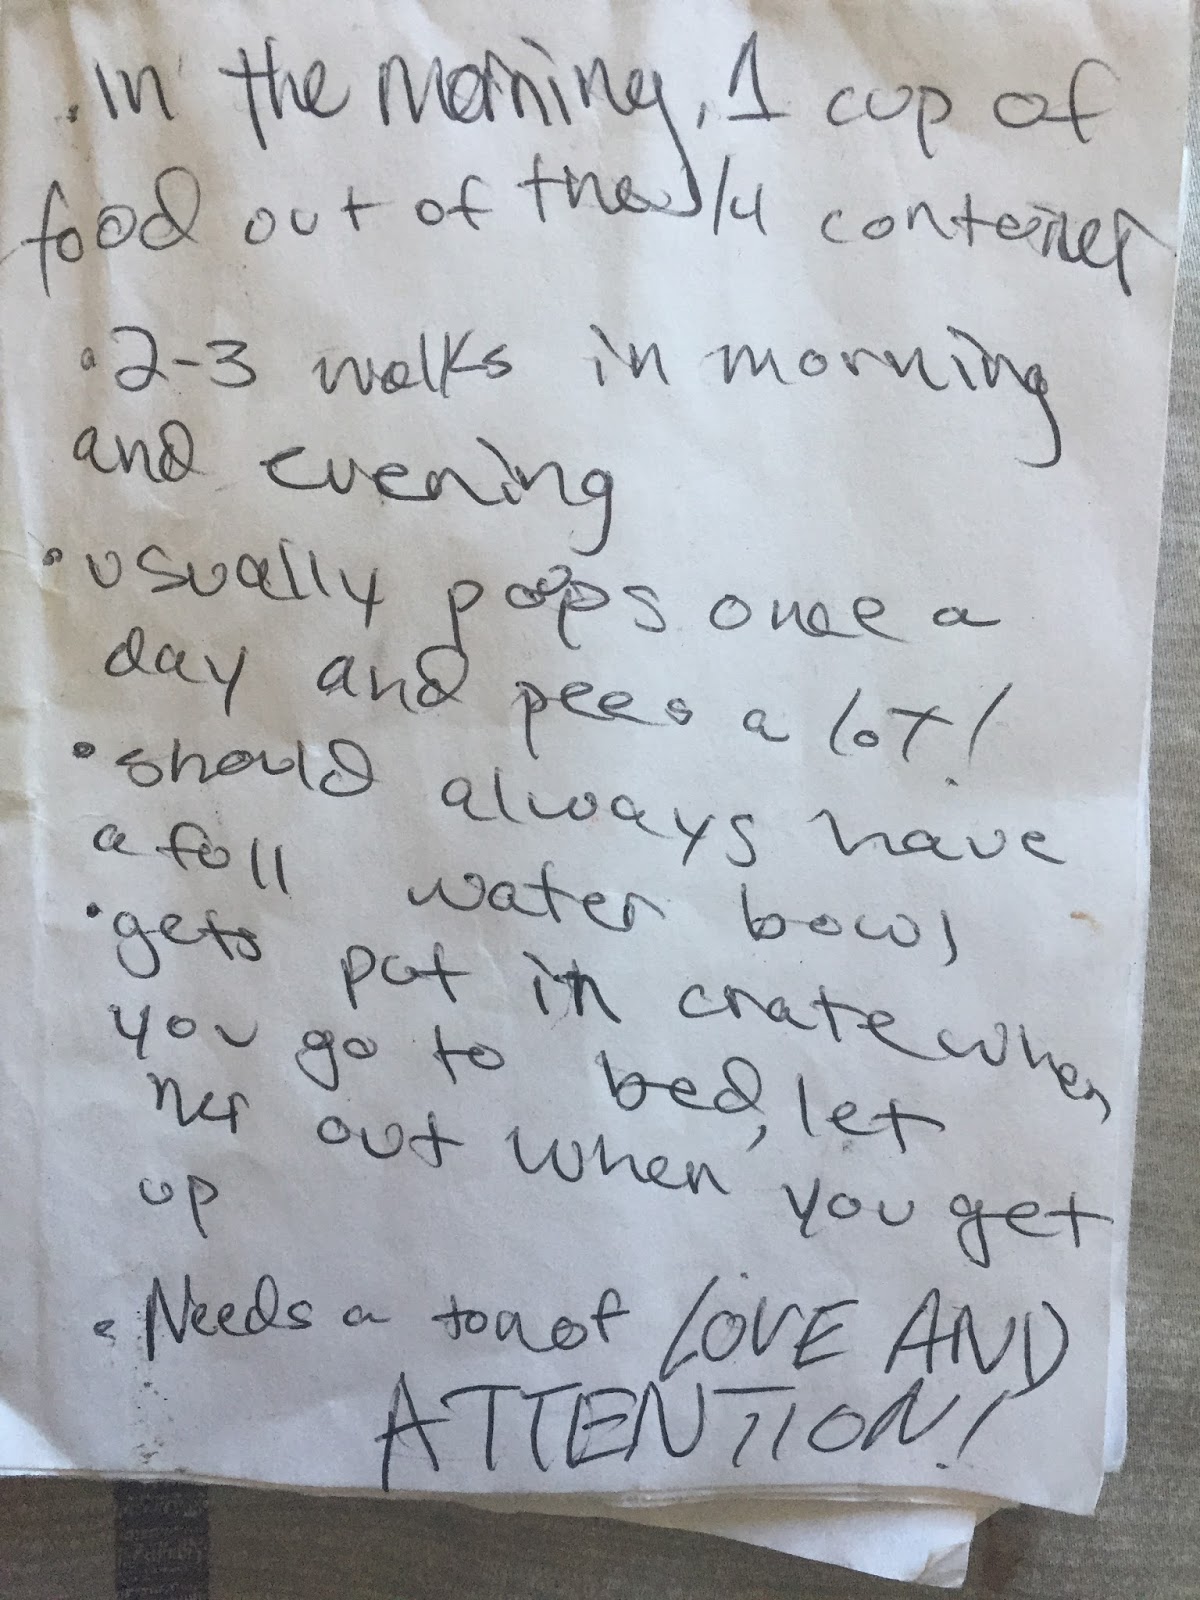 • In the morning, 1 cup of
food out of the 1/4 container
• 2-3 walks in morning
and evening
• usually poops once a
day and pees a lot!
• should always have
a full water bowl
• gets put in crate when
you go to bed, let
her out when you get
up
• Needs a ton of LOVE AND
ATTENTION!